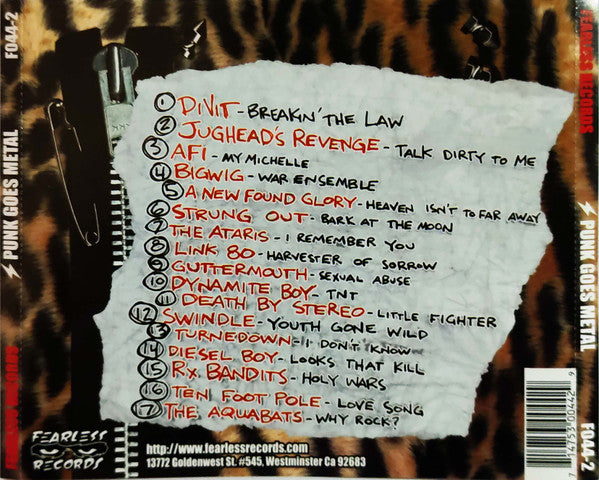 F044-2
PUNK GOES METAL
FEARLESS RECORDS
① DIVIT - BREAKIN' THE LAW
② JUGHEAD'S REVENGE - TALK DIRTY TO ME
③ AFI - MY MICHELLE
④ BIGWIG - WAR ENSEMBLE
⑤ A NEW FOUND GLORY - HEAVEN ISN'T TO FAR AWAY
⑥ STRUNG OUT - BARK AT THE MOON
⑦ THE ATARIS - I REMEMBER YOU
⑧ LINK 80 - HARVESTER OF SORROW
⑨ GUTTERMOUTH - SEXUAL ABUSE
⑩ DYNAMITE BOY - TNT
⑪ DEATH BY STEREO - LITTLE FIGHTER
⑫ SWINDLE - YOUTH GONE WILD
⑬ TURNEDOWN - I DON'T KNOW
⑭ DIESEL BOY - LOOKS THAT KILL
⑮ RX BANDITS - HOLY WARS
⑯ TEN FOOT POLE - LOVE SONG
⑰ THE AQUABATS - WHY ROCK?
FEARLESS
RECORDS
http://www.fearlessrecords.com
13772 Goldenwest St. #545, Westminster Ca 92683
FEARLESS RECORDS
PUNK GOES METAL
F044-2
7 14753 00442 9